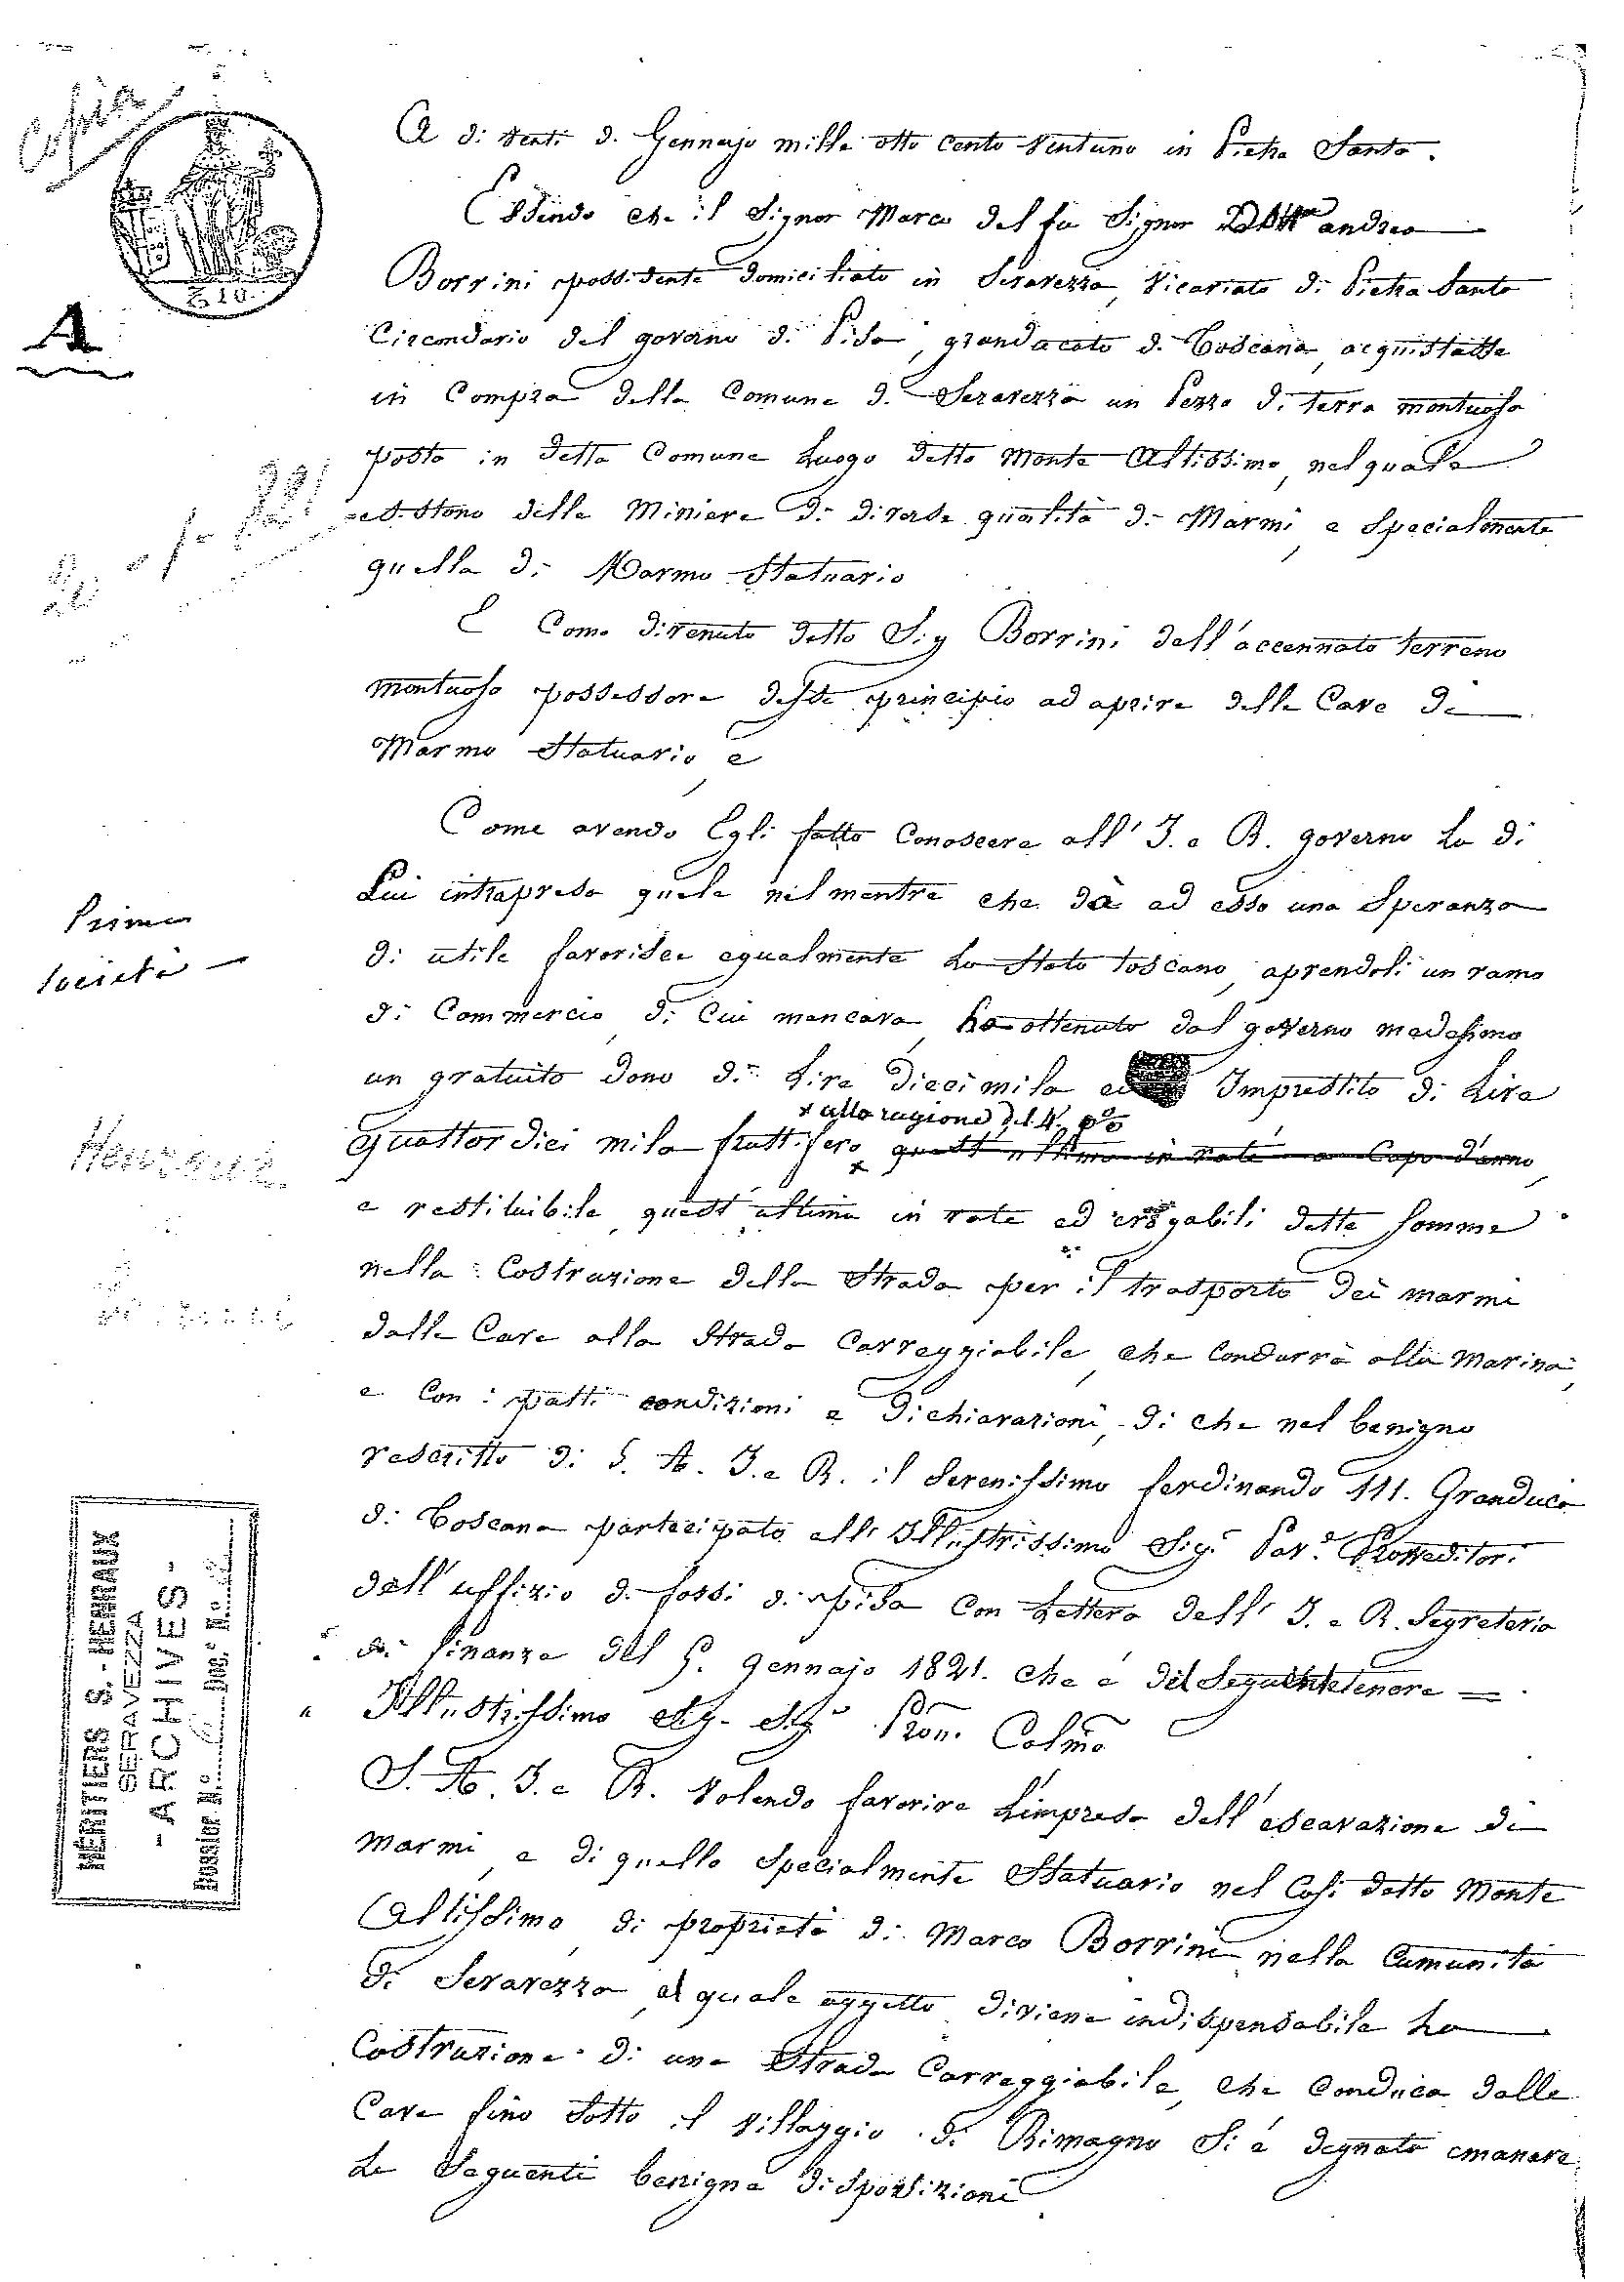 Copia
A di venti di Gennajo mille otto cento ventuno in Pietra Santa.
Essendo che il Signor Marco del fu Signor Dottr andrea
Borrini possidente domiciliato in Seravezza, Vicariato di Pietra Santa
Circondario del governo di Pisa, granducato di Toscana, acquistasse
in Compra della Comune di Seravezza un Pezzo di terra montuosa
posto in detta Comune Luogo detto Monte Altissimo, nel quale
esistono delle Miniere di diverse qualità di Marmi, e Specialmente
quella di Marmo Statuario
E Come divenuto detto Sig Borrini dell'accennato terreno
montuoso possessore desse principio ad aprire delle Cave di
Marmo Statuario, e
Come avendo Egli fatto Conoscere all' I. e R. governo La di
Lui intrapresa quale nel mentre che dà ad esso una Speranza
di utile favorisce egualmente Lo Stato toscano, aprendoli un ramo
di Commercio, di Cui mancava, ha ottenuto dal governo medesimo
un gratuito dono di Lire Dieci mila e Imprestito di Lire
x alla ragione del 4. p%
quattordici mila fruttifero x quest'ultimo in rate a Capo d'anno,
e restituibile, quest'ultimo in rate ed erogabili dette Somme
nella Costruzione della Strada per il trasporto dei marmi
dalle Cave alla Strada Carreggiabile, che Condurrà alla Marina,
e Con i patti condizioni e dichiarazioni, di che nel benigno
rescritto di S. A. I. e R. il Serenissimo Ferdinando III. Granduca
di Toscana partecipato all' Illustrissimo Sigr. Cav.e Provveditori
dell'uffizio di fossi di Pisa Con Lettera dell' I. e R. Segreteria
di Finanze del 5. Gennajo 1821. che è del Seguente tenore =
" Illustrissimo Sig. Sig. Pron. Colmo
S. A. I. e R. Volendo favorire L'impresa dell'escavazione di
marmi, e di quello Specialmente Statuario nel Così detto Monte
Altissimo, di proprietà di Marco Borrini nella Cumunità
di Seravezza, al quale oggetto diviene indispensabile La
Costruzione di una Strada Carreggiabile, che Conduca dalle
Cave fino Sotto il Villaggio di Rimagno Si è degnata emanare
Le Seguenti benigne disposizioni.
10
A
Prima
Società —
Henraux
HÉRITIERS S. HENRAUX
SERAVEZZA
- ARCHIVES -
Dossier N.o Doc.t N.o